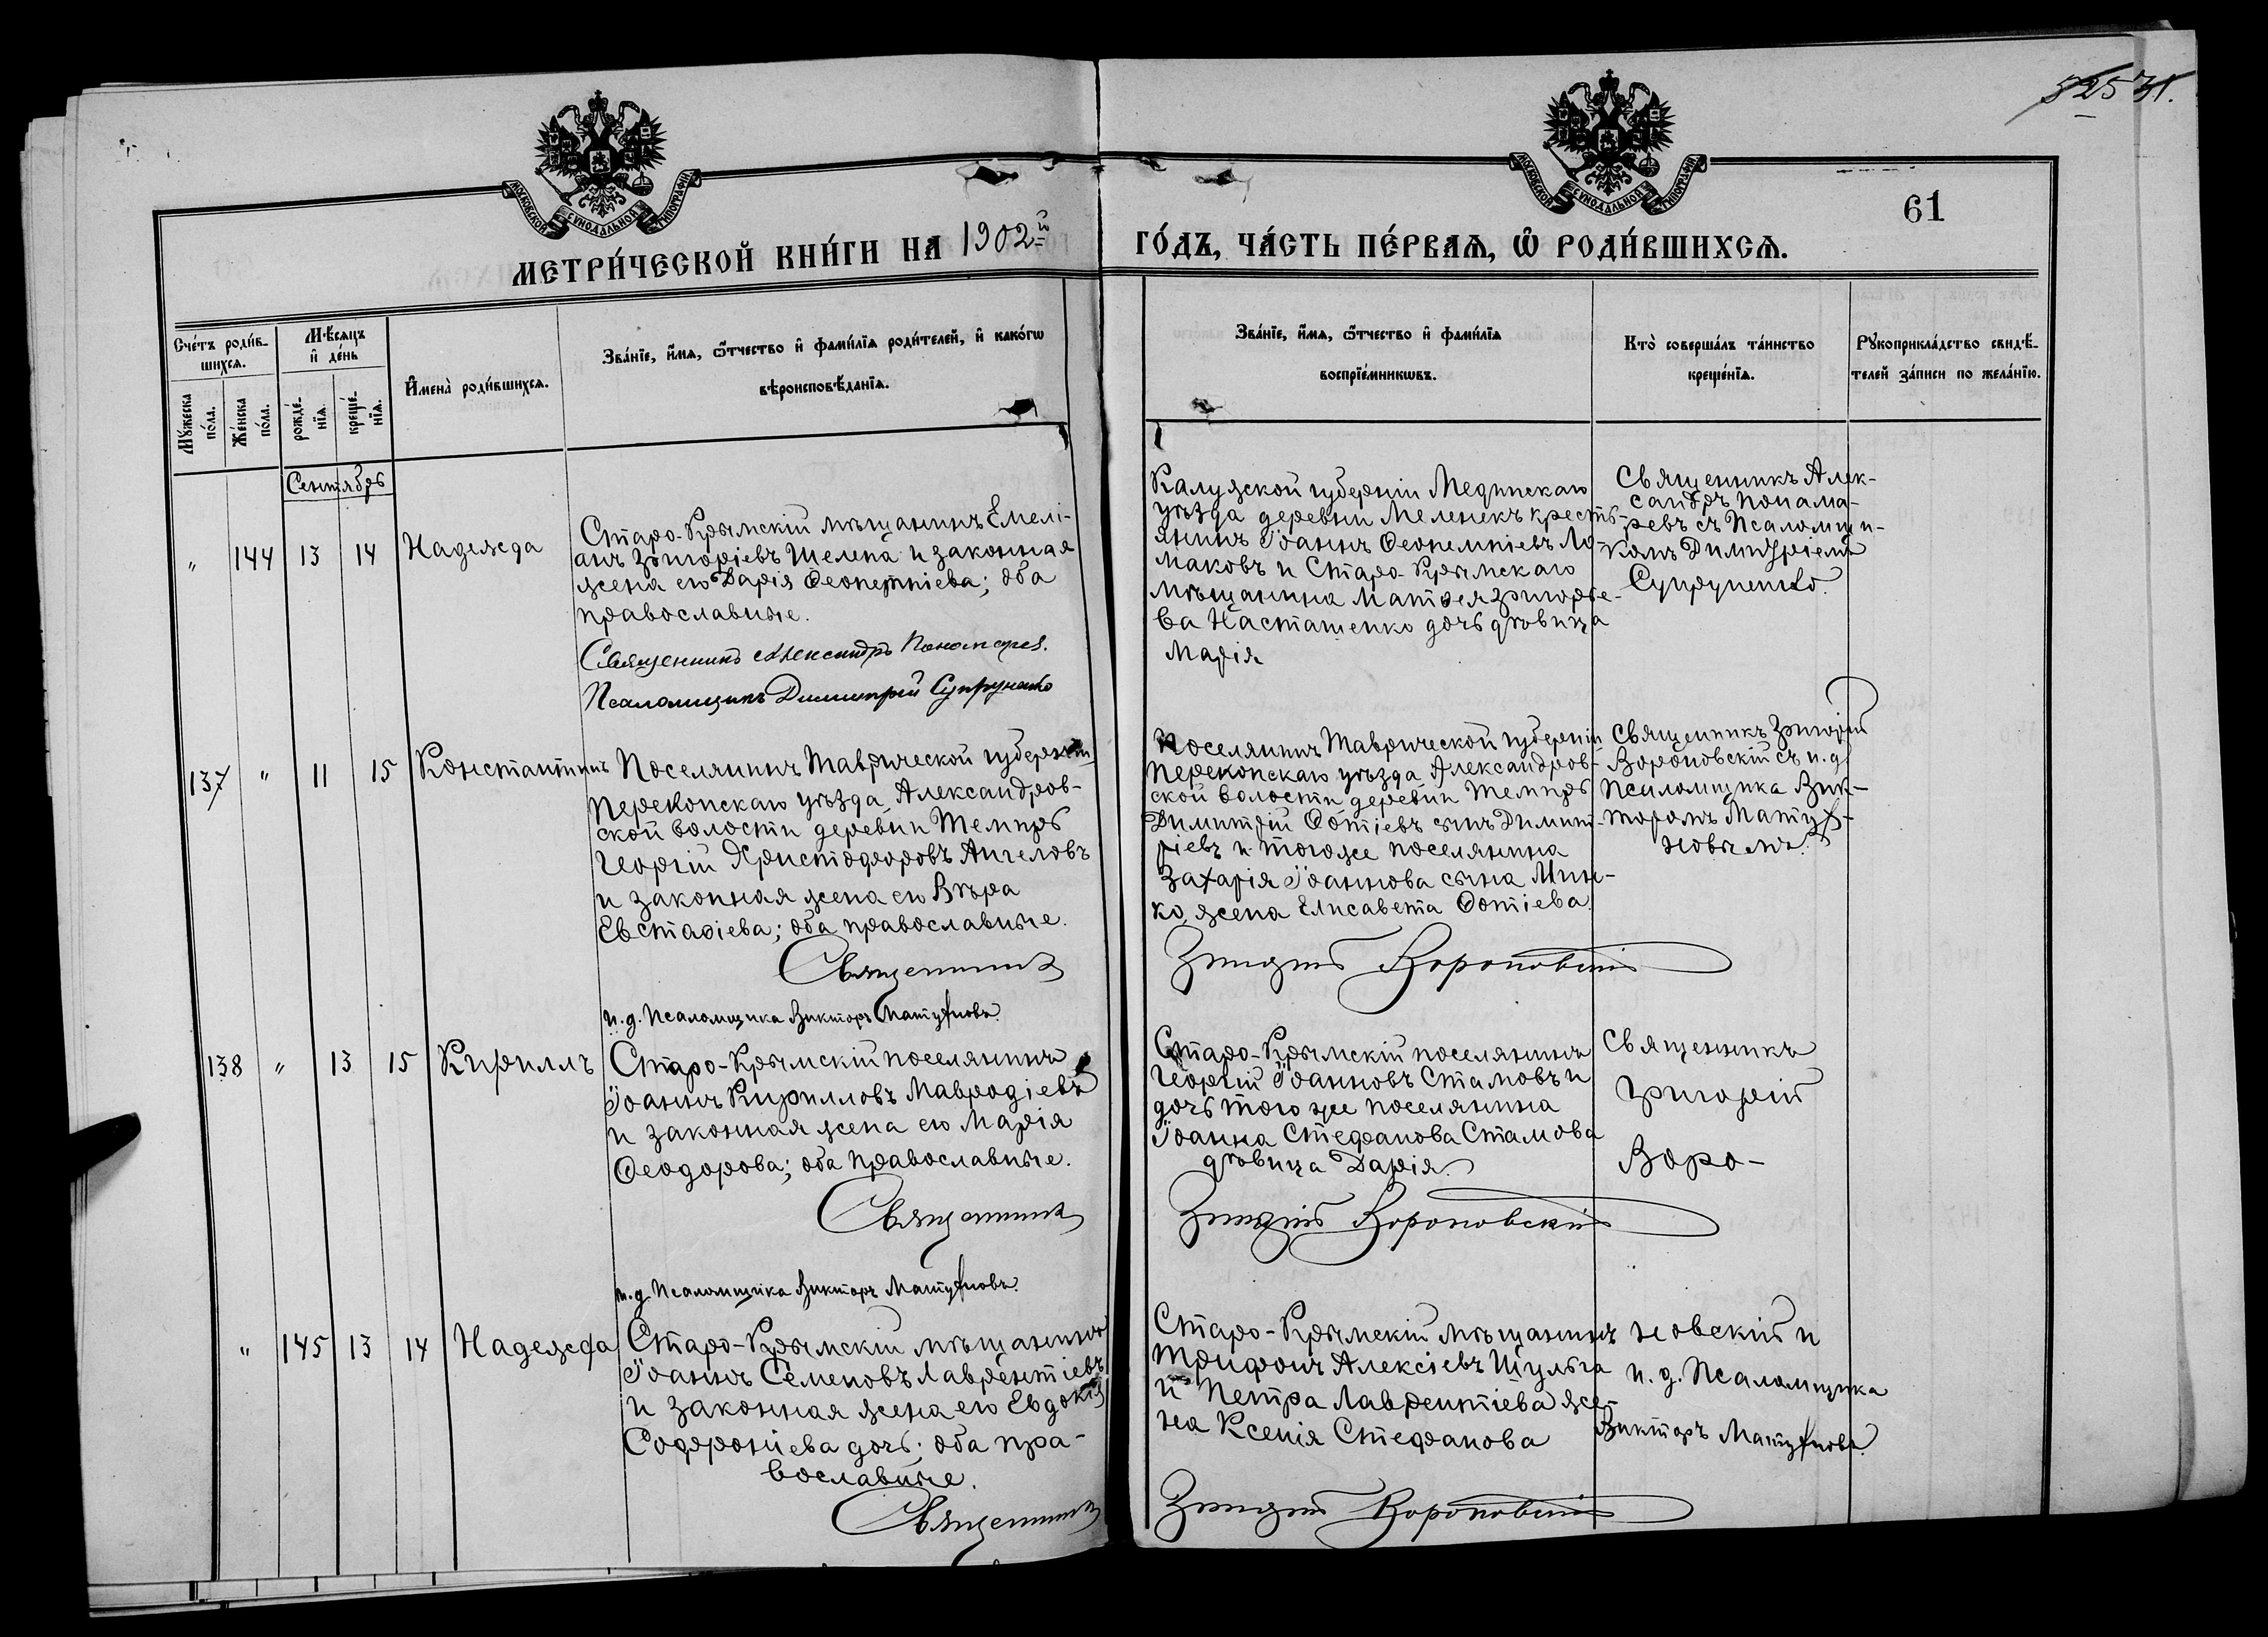 525 31.
61
МОСКОВСКОЙ СУНОДАЛЬНОЙ ТИПОГРАФІИ
МОСКОВСКОЙ СУНОДАЛЬНОЙ ТИПОГРАФІИ
МЕТРИ́ЧЕСКОЙ КНИ́ГИ НА 1902й
ГО́ДЪ, ЧА́СТЬ ПЕ́РВАѦ, Ѡ҆ РОДИ́ВШИХСѦ.
Сче́тъ роди́в-
шихсѧ.
Мꙋ́жеска по́ла.
Же́нска по́ла.
Мѣ́сяцъ
и҆ де́нь
рожде́-
нїѧ.
креще́-
нїѧ.
И҆мена̀ роди́вшихсѧ.
Зва́нїе, и҆́мѧ, ѻ҆́тчество и҆ фами́лїѧ роди́телей, и҆ како́гѡ
вѣроисповѣ́данїѧ.
Зва́нїе, и҆́мѧ, ѻ҆́тчество и҆ фами́лїѧ
воспрїе́мникѡвъ.
Кто̀ соверша́лъ та́инство
креще́нїѧ.
Рꙋкоприкла́дство свидѣ́-
телей за́писи по жела́нїю.
Сентябрь
" 144 13 14 Надежда
Старо-Крымскій мѣщанинъ Емелі-
анъ Григоріевъ Шелепа и законная
жена его Дарія Ѳеопемптіева; оба
православные.
Священникъ Александръ Понамарев.
Псаломщикъ Димитрій Супруненко
Калужской губерніи Медынскаго
уѣзда деревни Меленекъ кресть-
янинъ Іоаннъ Ѳеопемптіевъ Ло-
маковъ и Старо-Крымскаго
мѣщанина Матѳея Григорье-
ва Насташенко дочь дѣвица
Марія
Священникъ Алек-
сандръ Понама-
ревъ съ Псаломщи-
комъ Димитріемъ
Супруненко.
137 " 11 15 Константинъ
Поселянинъ Таврической губерніи
Перекопскаго уѣзда, Александров-
ской волости деревни Темиръ
Георгій Христофоровъ Ангеловъ
и законная жена его Вѣра
Евстаѳіева; оба православные.
Священникъ
и.д. Псаломщика Викторъ Матуфновъ.
Поселянинъ Таврической губерніи
Перекопскаго уѣзда, Александров-
ской волости деревни Темиръ
Димитрій Фотіевъ сынъ Димит-
ріевъ и тогоже поселянина
Захарія Іоаннова сына Мин-
ко, жена Елисавета Фотіева.
Григорій Вороновскій
Священникъ Григорій
Вороновскій съ и.д.
Псаломщика Вик-
торомъ Матуф-
новымъ.
138 " 13 15 Кириллъ
Старо-Крымскій поселянинъ
Іоаннъ Кирилловъ Мавродіевъ
и законная жена его Марія
Ѳеодорова; оба православные.
Священникъ
и.д. Псаломщика Викторъ Матуфновъ.
Старо-Крымскій поселянинъ
Георгій Іоанновъ Стамовъ и
дочь того же поселянина
Іоанна Стефанова Стамова
дѣвица Дарія.
Григорій Вороновскій
Священникъ
Григорій
Воро-
" 145 13 14 Надежда
Старо-Крымскій мѣщанинъ
Іоаннъ Семеновъ Лаврентіевъ
и законная жена его Евдокія
Софроніева дочь; оба пра-
вославные.
Священникъ
Старо-Крымскій мѣщанинъ
Трифонъ Алексіевъ Шульга
и Петра Лаврентіева же-
на Ксенія Стефанова
Григорій Вороновскій
новскій и
и.д. Псаломщика
Викторъ Матуфновъ.